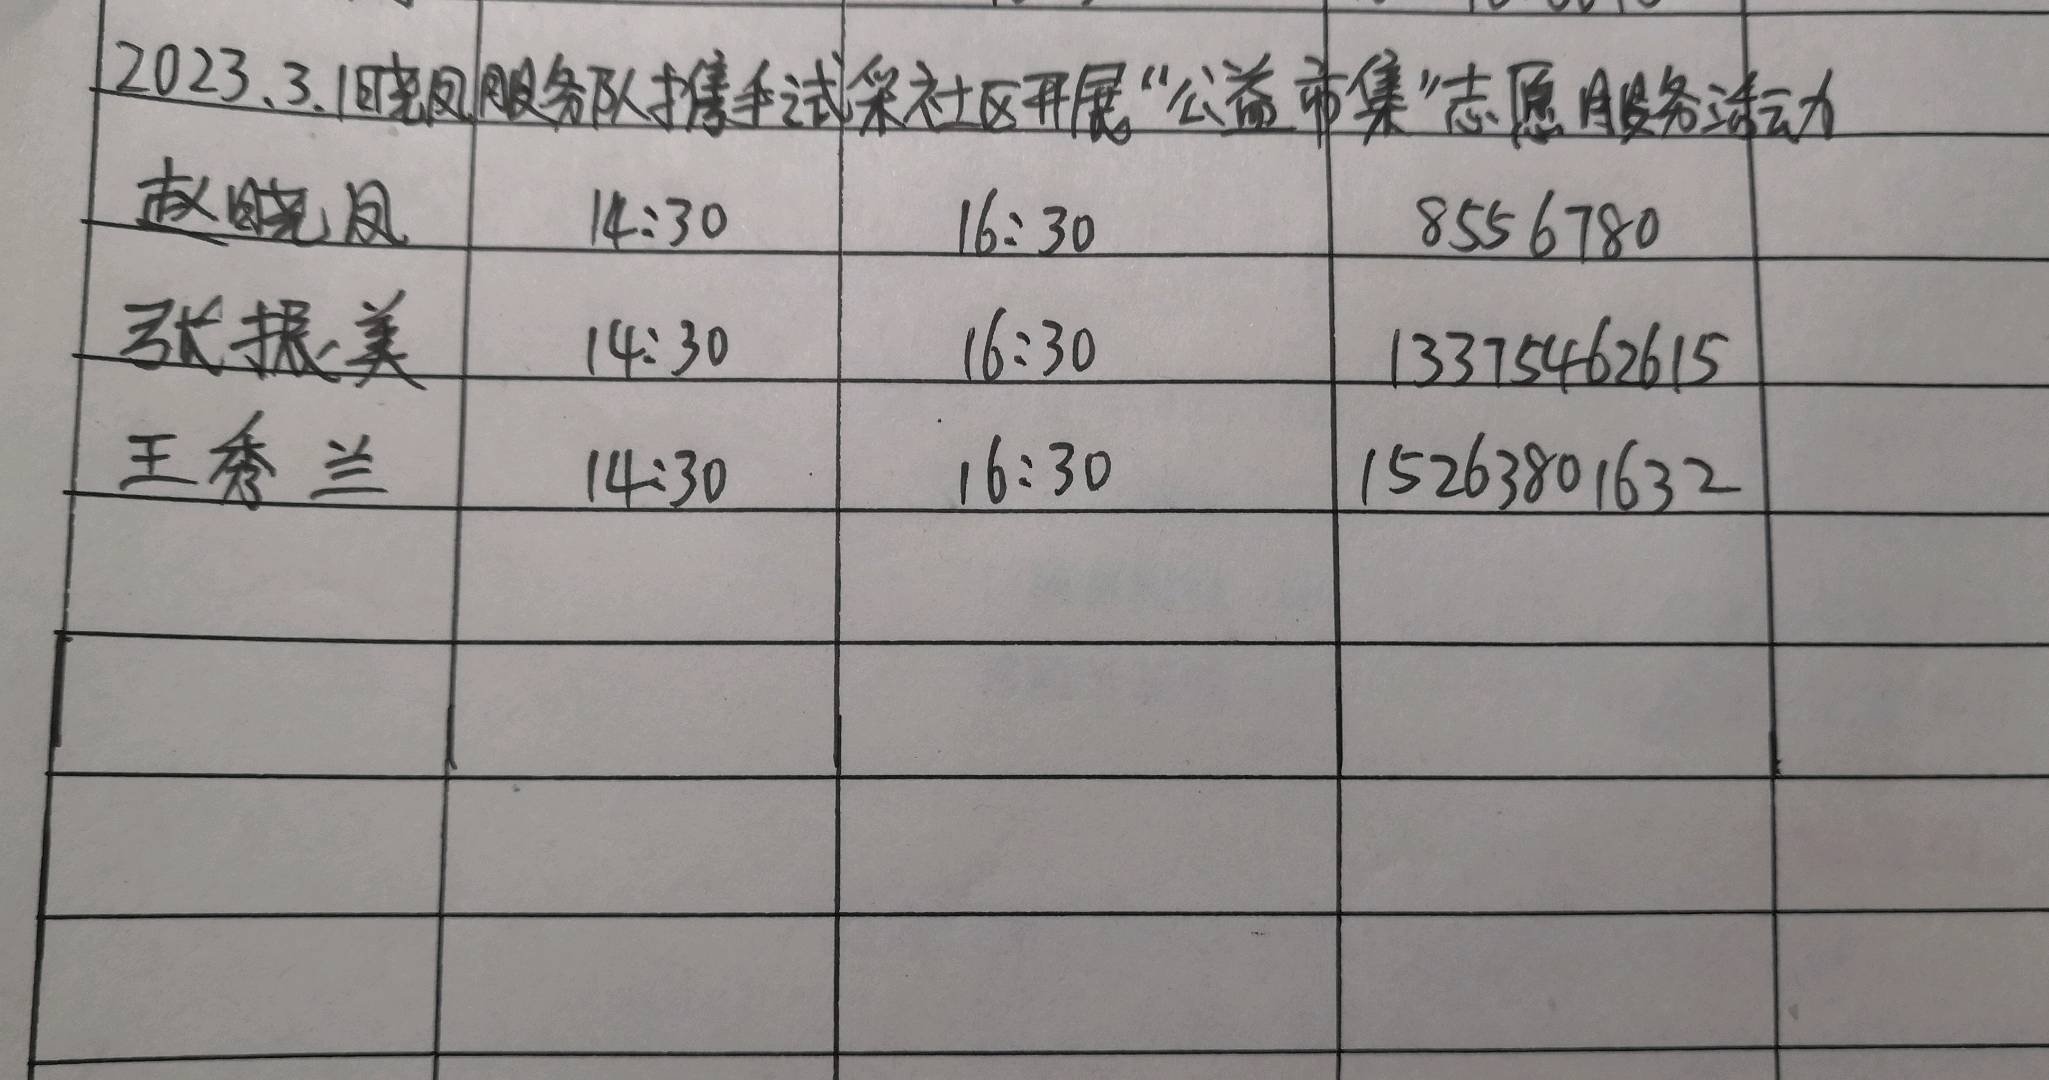 2023.3.1晓凤服务队携手试采社区开展“公益市集”志愿服务活动
赵晓凤 14:30 16:30 8556780
张振美 14:30 16:30 13375462615
王秀兰 14:30 16:30 15263801632